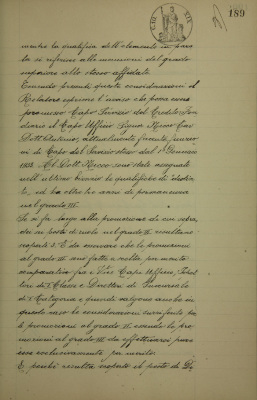 189
mentre la qualifica dell'elemento in paro
la si riferisce alle mansioni del grado
superiore allo stesso affidate.
Tenendo presenti queste considerazioni il
Relatore esprime l'avviso che possa essere
promosso Capo Servizio del Credito Fon
diario il Capo Ufficio Signor Rocco Cav.
Dott. attualmente funzio
ni di Capo del Servizio stesso dal 1° Gennaio
1933. Al Dott. Rocco sono state assegnate
nell'ultimo biennio le qualifiche di
ed ha oltre tre anni di permanenza
nel grado III.
Se si fa luogo alla promozione di cui sopra,
dei posti di ruolo nel grado III resultano
scoperti 3. È da osservare che le promozioni
al grado III sono fatte a scelta per merito
comparativo fra i Vice Capi Ufficio,
di 1ª Classe e Direttori di
di e quindi valgono anche in
questo caso le considerazioni
le promozioni al grado II essendo le pro
mozioni al grado III da effettuarsi pure
esse esclusivamente per merito.
E, poichè resulta scoperto il posto di